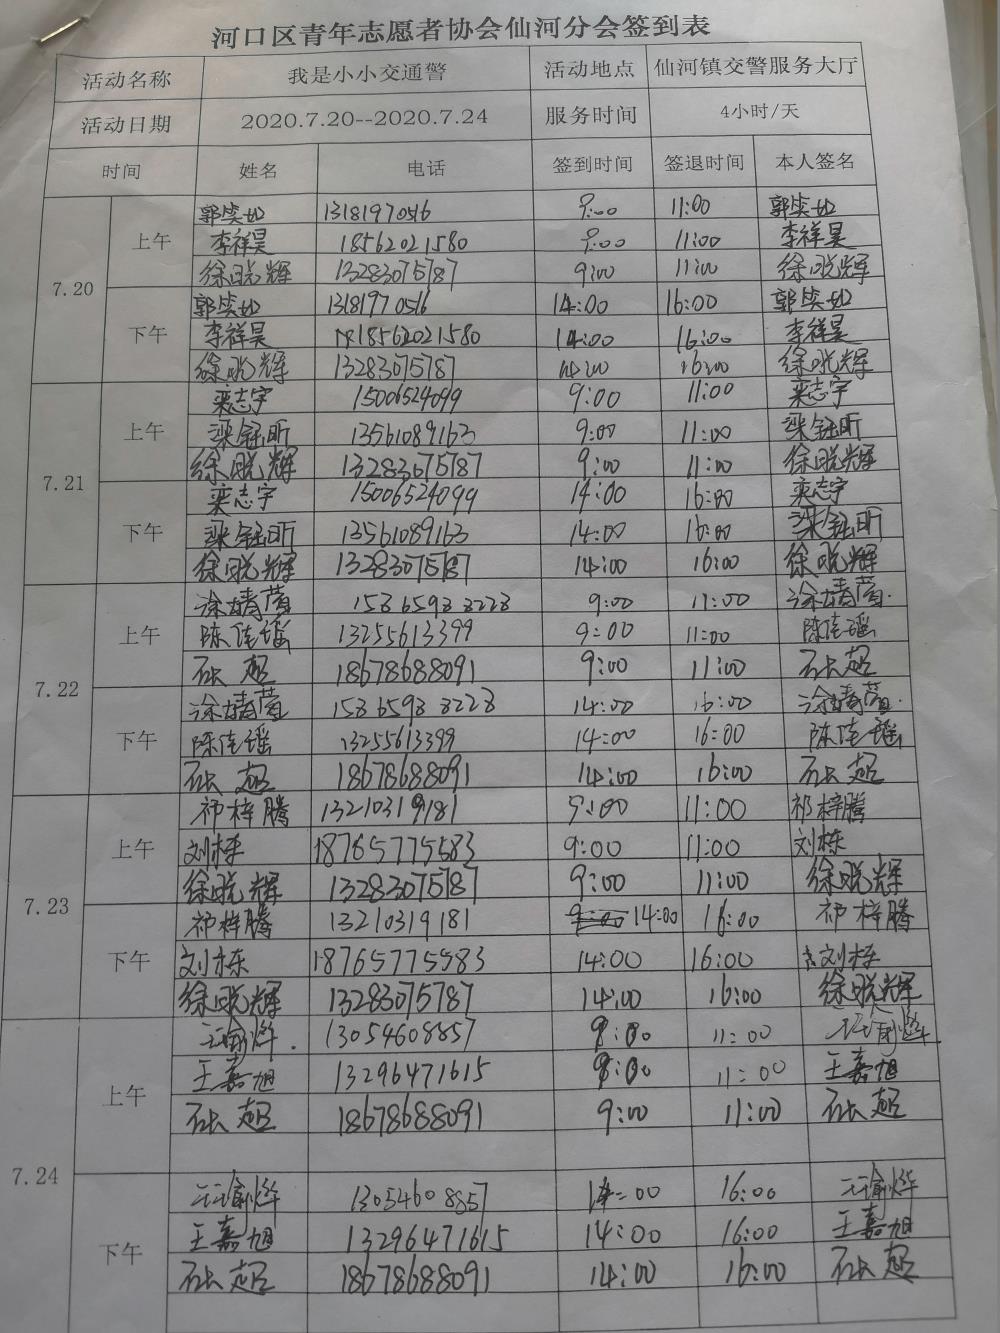 河口区青年志愿者协会仙河分会签到表
活动名称 我是小小交通警 活动地点 仙河镇交警服务大厅
活动日期 2020.7.20--2020.7.24 服务时间 4小时/天
时间 姓名 电话 签到时间 签退时间 本人签名
7.20 上午 郭奕如 13181970516 9:00 11:00 郭奕如
李祥昊 18562021580 9:00 11:00 李祥昊
徐晓辉 13283075787 9:00 11:00 徐晓辉
下午 郭奕如 13181970516 14:00 16:00 郭奕如
李祥昊 18562021580 14:00 16:00 李祥昊
徐晓辉 13283075787 14:00 16:00 徐晓辉
7.21 上午 栾志宇 15006524099 9:00 11:00 栾志宇
梁钰昕 13561089163 9:00 11:00 梁钰昕
徐晓辉 13283075787 9:00 11:00 徐晓辉
下午 栾志宇 15006524099 14:00 16:00 栾志宇
梁钰昕 13561089163 14:00 16:00 梁钰昕
徐晓辉 13283075787 14:00 16:00 徐晓辉
7.22 上午 涂婧萱 9:00 11:00 涂婧萱
陈佳瑶 13255613399 9:00 11:00 陈佳瑶
石长超 18678688091 9:00 11:00 石长超
下午 涂婧萱 14:00 16:00 涂婧萱
陈佳瑶 13255613399 14:00 16:00 陈佳瑶
石长超 18678688091 14:00 16:00 石长超
7.23 上午 祁梓腾 13210319181 9:00 11:00 祁梓腾
刘栋 18765775583 9:00 11:00 刘栋
徐晓辉 13283075787 9:00 11:00 徐晓辉
下午 祁梓腾 13210319181 14:00 16:00 祁梓腾
刘栋 18765775583 14:00 16:00 刘栋
徐晓辉 13283075787 14:00 16:00 徐晓辉
7.24 上午 13054608857 9:00 11:00
王嘉旭 13296471615 9:00 11:00 王嘉旭
石长超 18678688091 9:00 11:00 石长超
下午 13054608857 14:00 16:00
王嘉旭 13296471615 14:00 16:00 王嘉旭
石长超 18678688091 14:00 16:00 石长超